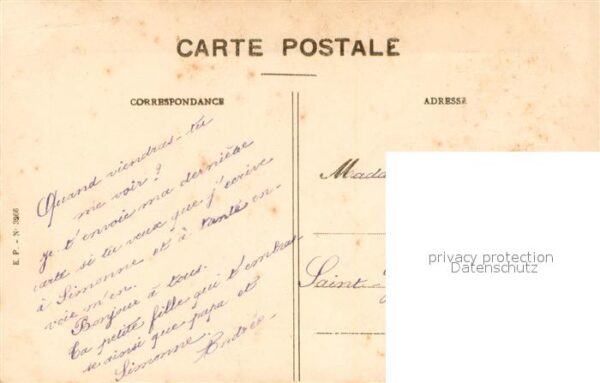 CARTE POSTALE
CORRESPONDANCE
ADRESSE
Quand viendras-tu
me voir?
je t'envoie ma dernière
carte si tu veux que j'écrive
à Simonne et à tante en-
voie m'en.
Bonjour à tous.
Ta petite fille qui t'embras-
se ainsi que papa et
Simonne.
Andrée
Mada
Saint-
E. P. - N° 3966
privacy protection
Datenschutz